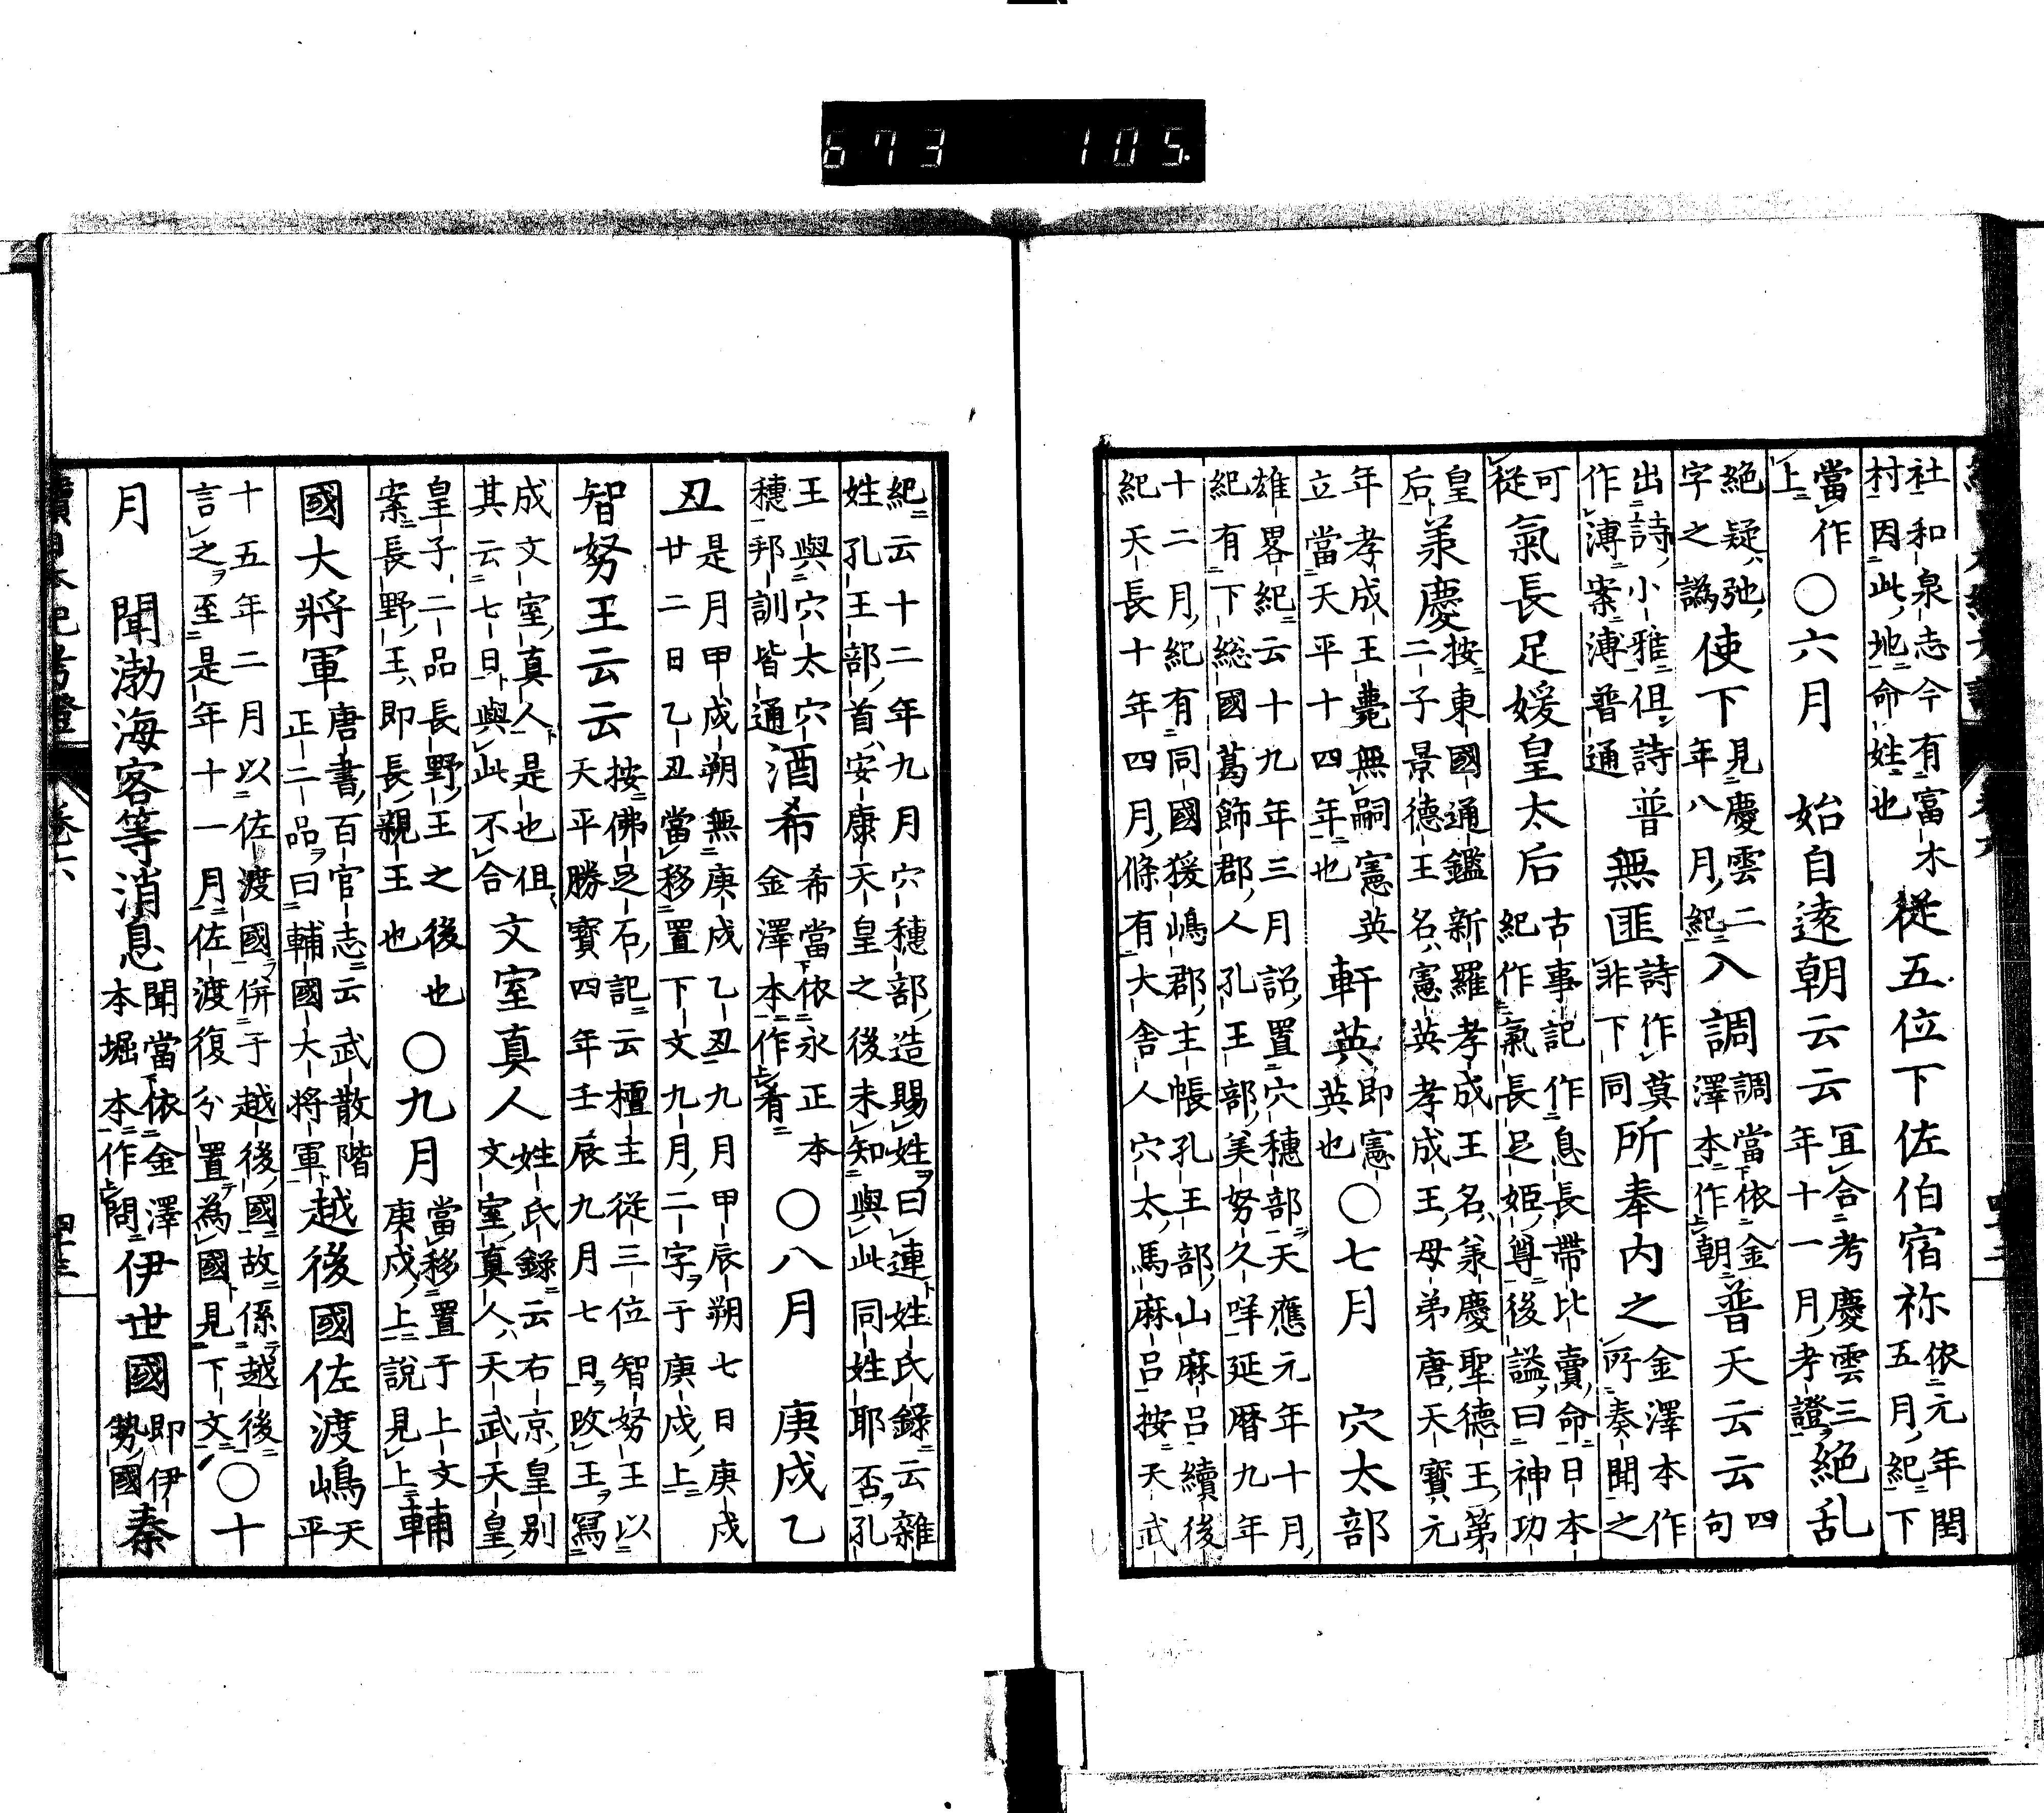 673 105
社和泉志今有富木
村因此地命姓也
從五位下佐伯宿祢
依元年閏
五月紀下
當作
上
○六月　始自遠朝云云
宜合考慶雲三
年十一月考證
絕乱
絕疑弛
字之譌
使下
見慶雲二
年八月紀
入調
調當依金
澤本作朝
普天云云
四
句
出詩小雅但詩普
作溥案溥普通
無匪
詩作莫
非下同
所奉内之
金澤本作
所奏聞之
可
從
氣長足媛皇太后
古事記作息長帶比賣命日本
紀作氣長足姬尊後謚曰神功
皇
后
羕慶
按東國通鑑新羅孝成王名羕慶聖德王第
二子景德王名憲英孝成王母弟唐天寶元
年孝成王薨無嗣憲英
立當天平十四年也
軒英
即憲
英也
○七月　穴太部
雄畧紀云十九年三月詔置穴穗部天應元年十月
紀有下総國葛飾郡人孔王部美努久咩延暦九年
十二月紀有同國猨嶋郡主帳孔王部山麻呂續後
紀天長十年四月條有大舎人穴太馬麻呂按天武
紀云十二年九月穴穗部造賜姓曰連姓氏錄云雜
姓孔王部首安康天皇之後未知與此同姓耶否孔
王與穴太穴
穗邦訓皆通
酒希
希當依永正本
金澤本作肴
○八月　庚戌乙
丑
是月甲戌朔無庚戌乙丑九月甲辰朔七日庚戌
廿二日乙丑當移置下文九月二字于庚戌上
智努王云云
按佛足石記云檀主從三位智努王以
天平勝寶四年壬辰九月七日改王寫
成文室真人是也但
其云七日與此不合
文室真人
姓氏錄云右京皇別
文室真人天武天皇
皇子二品長野王之後也
案長野王即長親王也
○九月
當移置于上文
庚戌上說見上
輔
國大將軍
唐書百官志云武散階
正二品曰輔國大將軍
越後國佐渡嶋
天
平
十五年二月以佐渡國併于越後國故係越後
言之至是年十一月佐渡復分置為國見下文
○十
月　聞渤海客等消息
聞當依金澤
本堀本作問
伊世國
即伊
勢國
秦